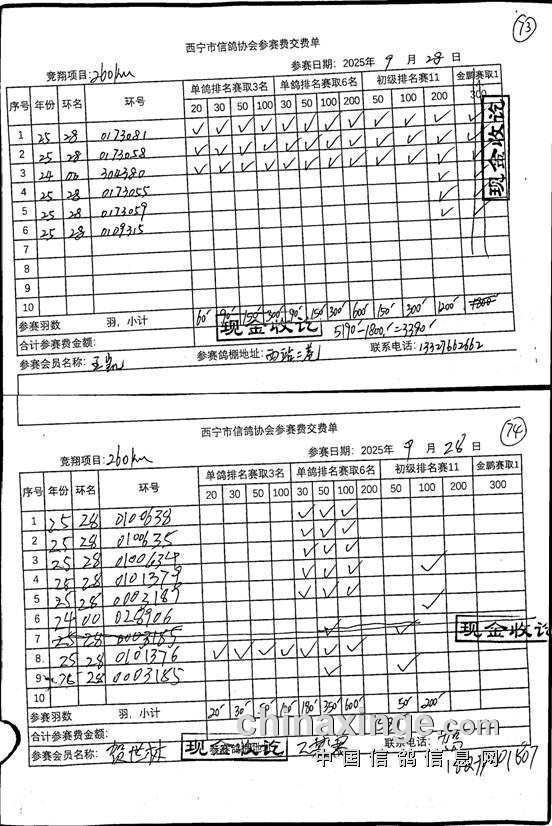 73
西宁市信鸽协会参赛费交费单
竞翔项目：260km 参赛日期：2025年 9 月 28 日
序号 年份 环名 环号 单鸽排名赛取3名 单鸽排名赛取6名 初级排名赛11 金鹏赛取1
20 30 50 100 30 50 100 200 50 100 200 300
1 25 28 0173081 ✓ ✓ ✓ ✓ ✓ ✓ ✓ ✓ ✓ ✓ ✓
2 25 28 0173058 ✓ ✓ ✓ ✓ ✓ ✓ ✓ ✓ ✓ ✓ ✓
3 24 00 304380 ✓ ✓ ✓ ✓ ✓ ✓ ✓ ✓ ✓ ✓ ✓
4 25 28 0173055 ✓
5 25 28 0173059 ✓
6 25 28 0109315 ✓
7
8
9
10
现金收讫
参赛羽数 羽，小计 60 90 150 300 90 150 300 600 150 300 1200
现金收讫
合计参赛费金额： 5190-1800=3390
参赛会员名称：王凯 参赛鸽棚地址： 联系电话：13327662662
74
西宁市信鸽协会参赛费交费单
竞翔项目：260km 参赛日期：2025年 9 月 28 日
序号 年份 环名 环号 单鸽排名赛取3名 单鸽排名赛取6名 初级排名赛11 金鹏赛取1
20 30 50 100 30 50 100 200 50 100 200 300
1 25 28 0100638 ✓ ✓ ✓
2 25 28 0100635 ✓ ✓ ✓
3 25 28 0100634 ✓ ✓ ✓
4 25 28 0101379 ✓ ✓ ✓ ✓
5 25 28 0002187 ✓ ✓ ✓
6 24 00 028906 ✓
7 25 28 0003185 ✓ ✓
8 25 28 0101376 ✓ ✓ ✓ ✓ ✓ ✓ ✓
9 25 28 0003185 ✓ ✓
10
现金收讫
参赛羽数 羽，小计 20 30 50 100 180 350 600 50 200
合计参赛费金额：
参赛会员名称：贺世林 现金收讫 联系电话：
chinaxinge.com
中国信鸽信息网